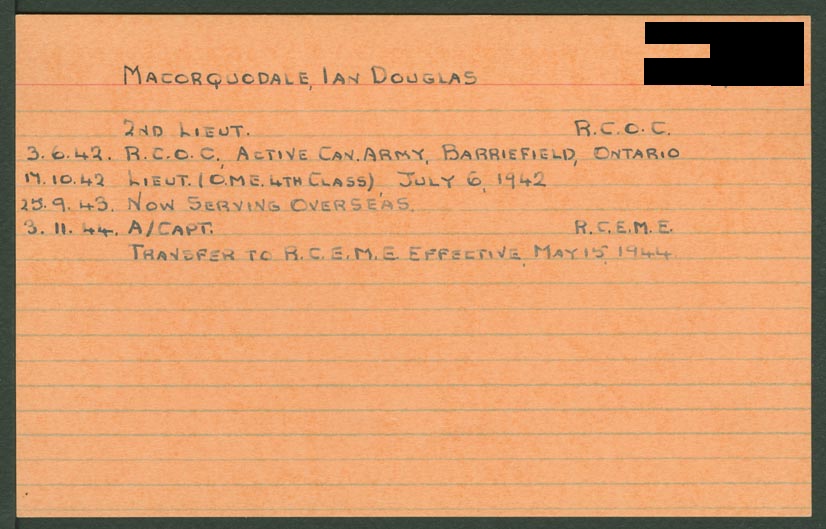 MACORQUODALE, IAN DOUGLAS
2ND LIEUT. R.C.O.C.
3.6.42. R.C.O.C., ACTIVE CAN. ARMY, BARRIEFIELD, ONTARIO
17.10.42 LIEUT. (O.M.E. 4TH CLASS), JULY 6, 1942
25.9.43. NOW SERVING OVERSEAS.
3.11.44. A/CAPT. R.C.E.M.E.
TRANSFER TO R.C.E.M.E. EFFECTIVE, MAY 15, 1944.